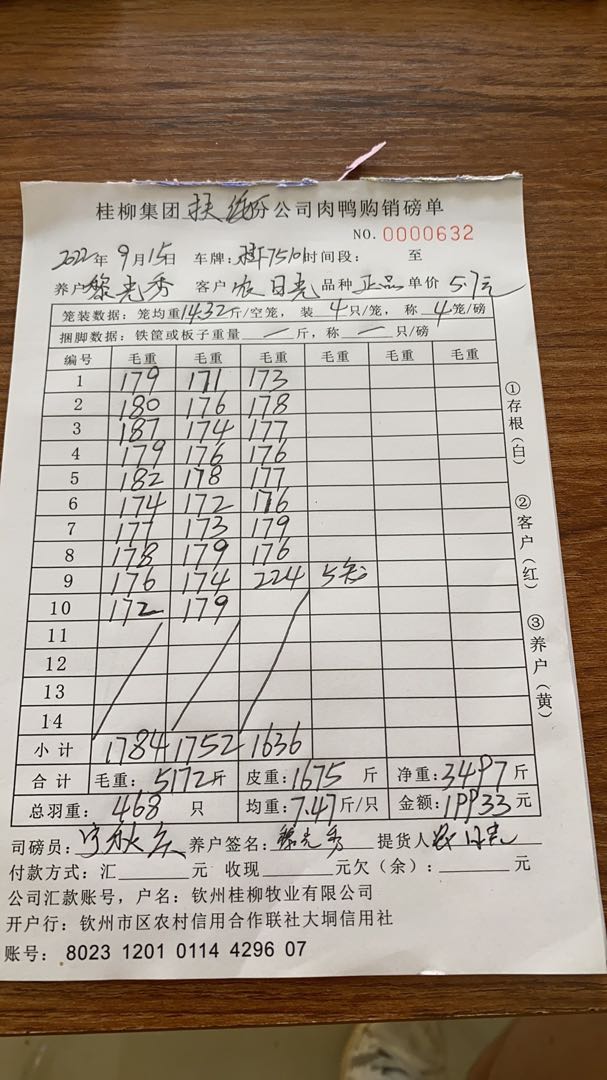 桂柳集团扶绥分公司肉鸭购销磅单
NO. 0000632
2022年9月15日 车牌: 7510 时间段: 至
养户 黎光秀 客户 农日亮 品种 正品 单价 5.7元
笼装数据: 笼均重14.32斤/空笼, 装4只/笼, 称4笼/磅
捆脚数据: 铁筐或板子重量 — 斤, 称 — 只/磅
编号 毛重 毛重 毛重 毛重 毛重
1 179 171 173
2 180 176 178
3 187 174 177
4 179 176 176
5 182 178 177
6 174 172 176
7 177 173 179
8 178 179 176
9 176 174 224 5笼
10 172 179
11
12
13
14
小计 1784 1752 1636
合计 毛重: 5172斤 皮重: 1675斤 净重: 3497斤
总羽重: 468只 均重: 7.47斤/只 金额: 19933元
司磅员: 养户签名: 黎光秀 提货人 农日亮
付款方式: 汇 元 收现 元欠(余): 元
公司汇款账号, 户名: 钦州桂柳牧业有限公司
开户行: 钦州市区农村信用合作联社大垌信用社
账号: 8023 1201 0114 4296 07
①存根(白)
②客户(红)
③养户(黄)